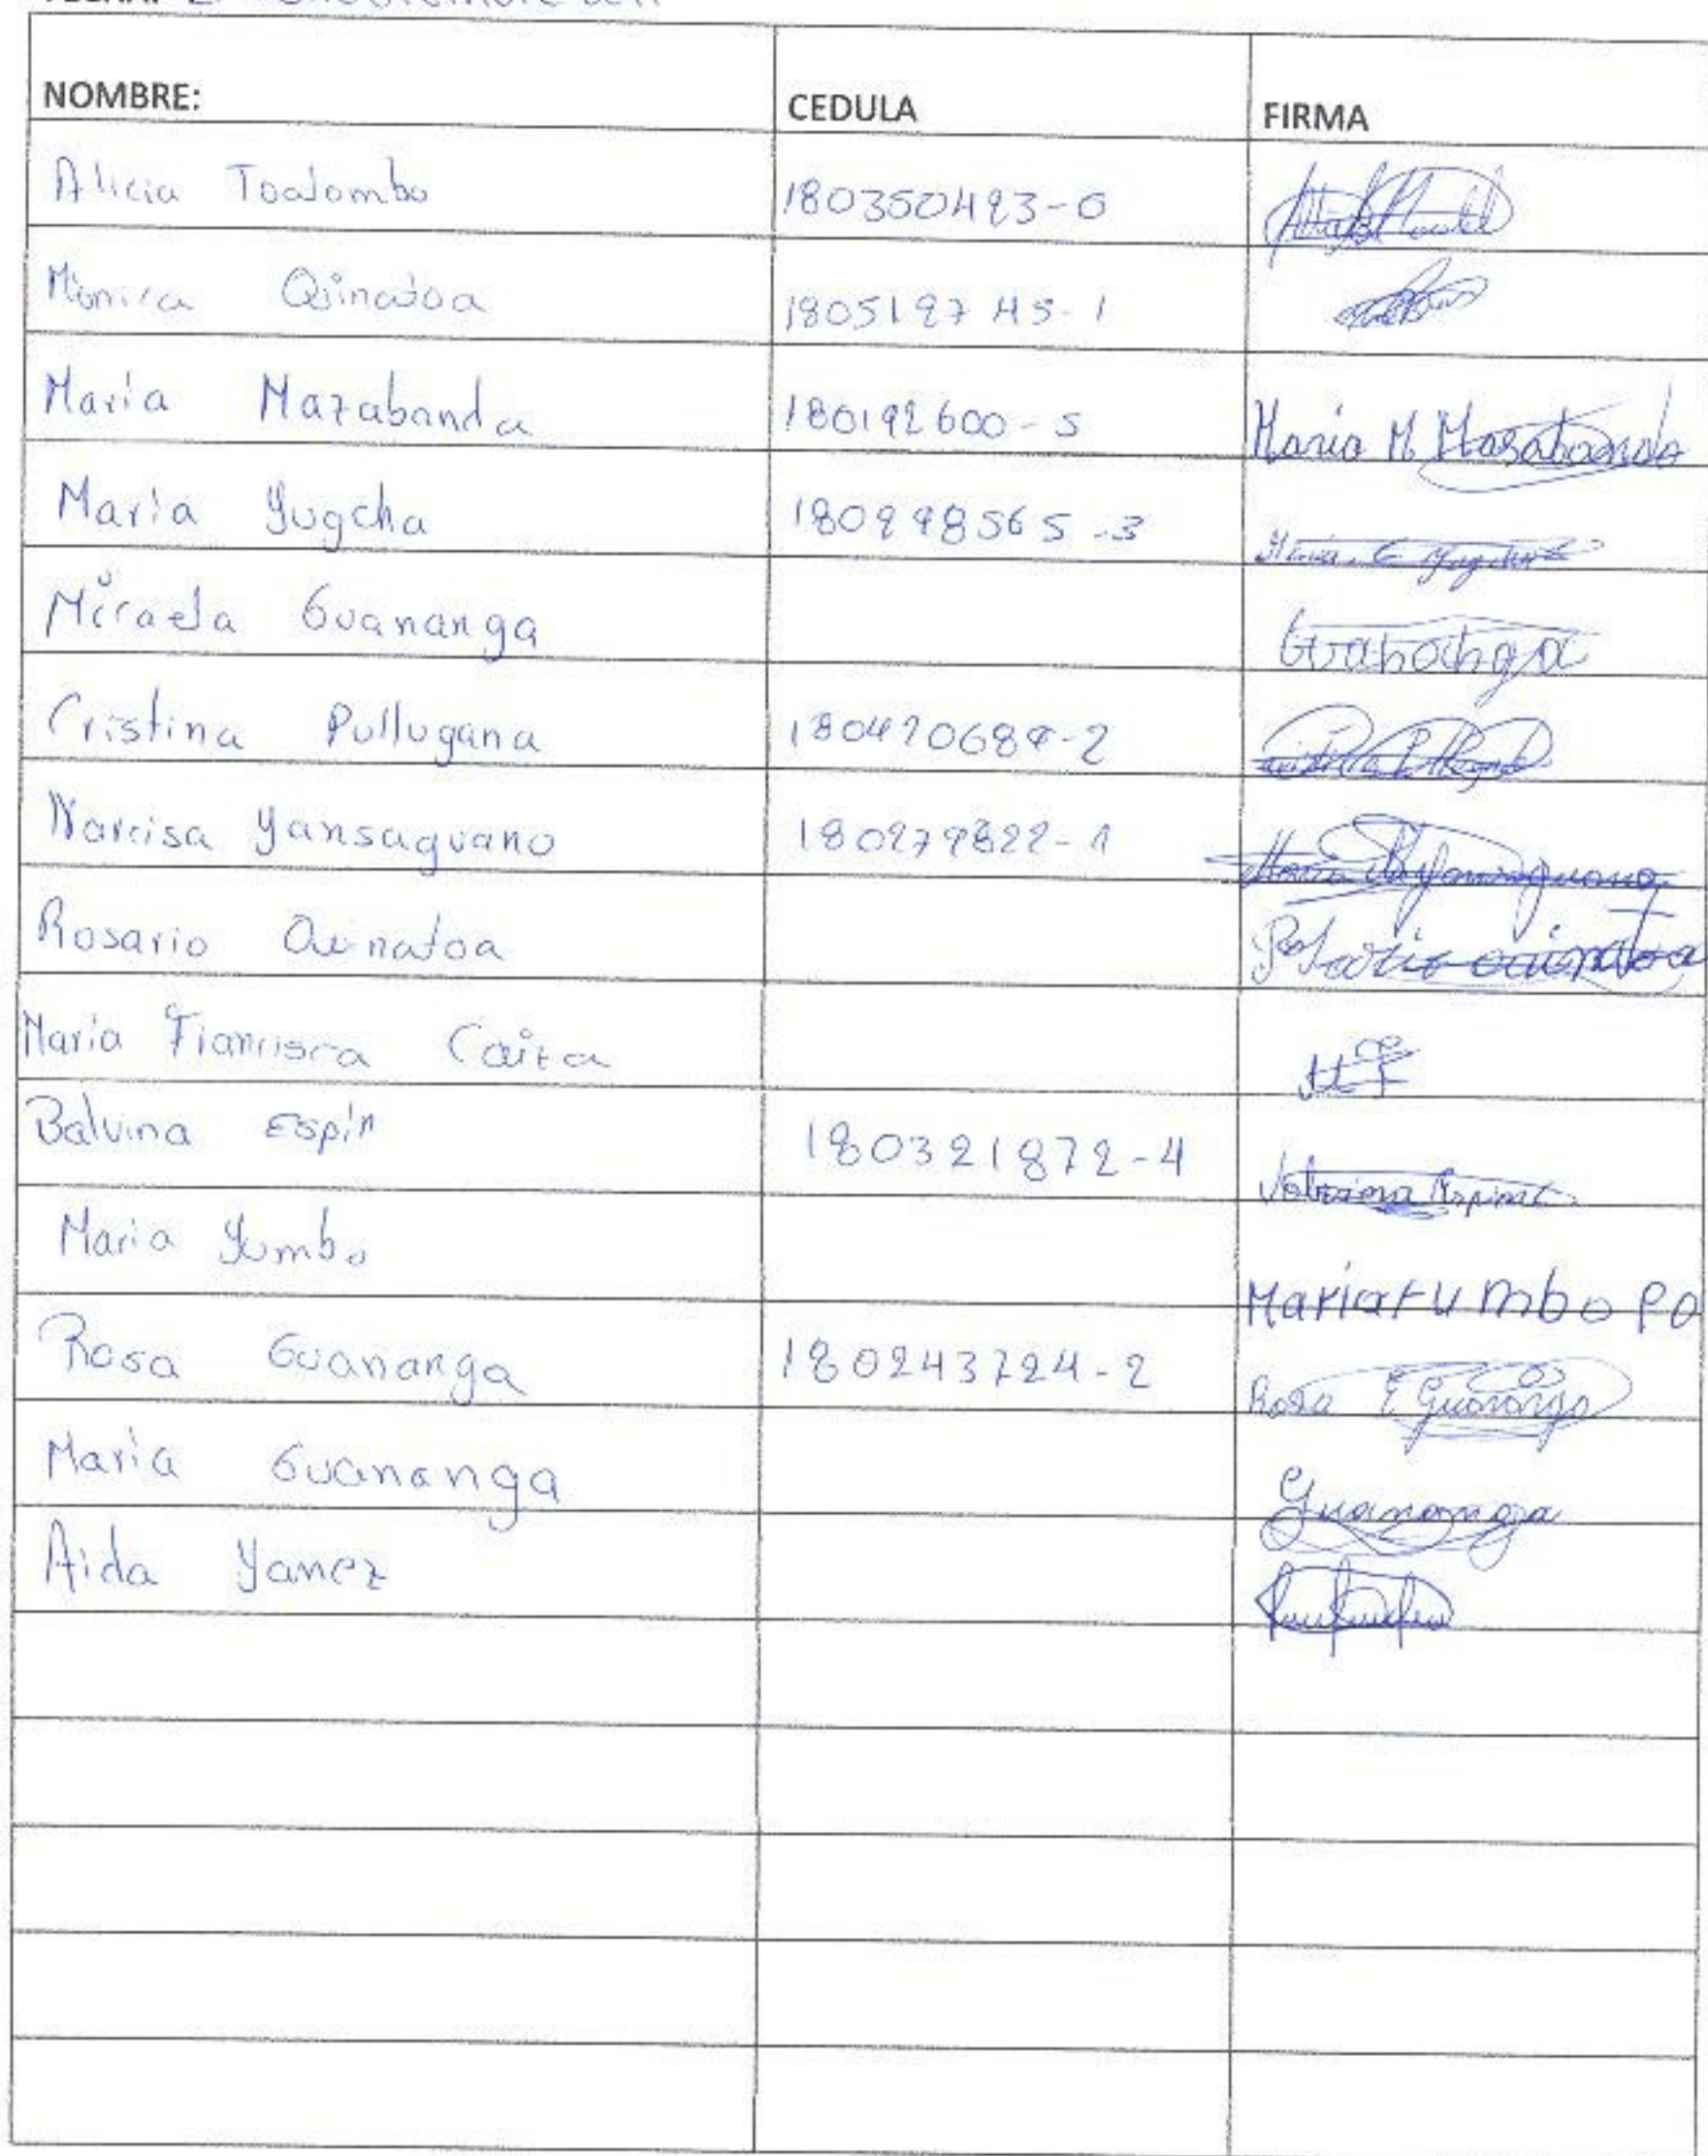 NOMBRE: CEDULA FIRMA
Alicia Toalombo 180350423-0
Monica Quinatoa 180512745-1
Maria Mazabanda 180192600-5 Maria M Masabanda
Maria Yugcha 180298565-3
Micaela Guananga Guananga
Cristina Pullugana 180420684-2
Narcisa Yansaguano 180279822-1
Rosario Quinatoa Rosario quinatoa
Maria Francisca Caiza
Balvina Espin 180321872-4
Maria Yumbo Maria Yumbo
Rosa Guananga 180243724-2 Rosa E Guananga
Maria Guananga Guananga
Aida Yanez